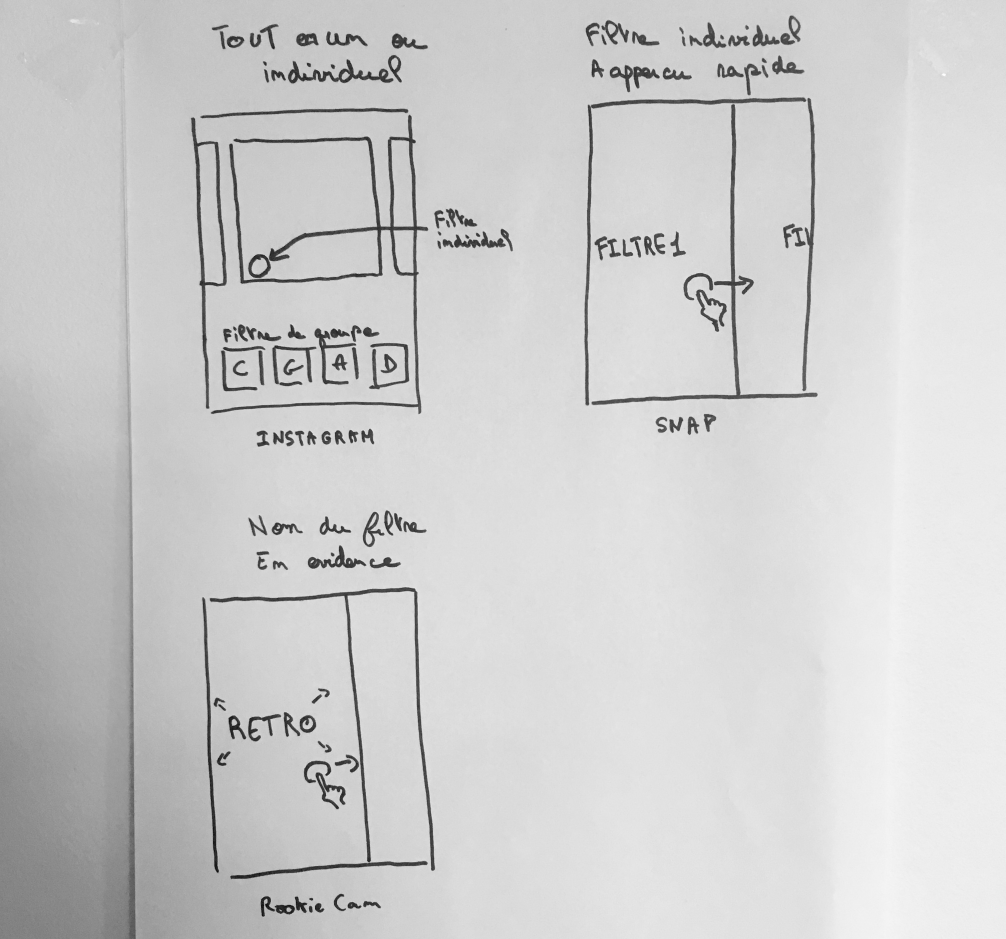 TOUT en un ou
individuel
Filtre
individuel
Filtre de groupe
C G A D
INSTAGRAM
Filtre individuel
A appercu rapide
FILTRE 1
FIL
SNAP
Nom du filtre
En evidence
RETRO
Rookie Cam